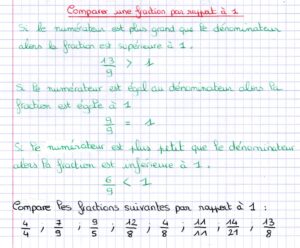 Comparer une fraction par rapport à 1
Si le numérateur est plus grand que le dénominateur
alors la fraction est supérieure à 1.
13/9 > 1
Si le numérateur est égal au dénominateur alors la
fraction est égale à 1
9/9 = 1
Si le numérateur est plus petit que le dénominateur
alors la fraction est inférieure à 1.
6/9 < 1
Compare les fractions suivantes par rapport à 1 :
4/4 , 7/9 , 9/5 , 12/8 , 4/8 , 11/11 , 14/21 , 13/8